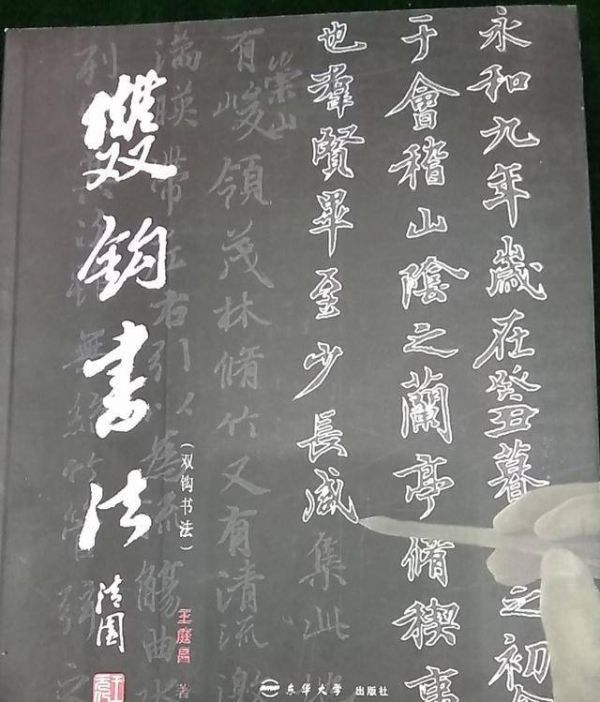 永和九年歲在癸丑暮之初
于會稽山陰之蘭亭脩稧事
也羣賢畢至少長咸集此地
有崇山峻領茂林脩竹又有清流激
滿暎帶左右引以為流觴曲水
列
雙鈎書法
(双钩书法)
清園
王庭昌 著
东华大学 出版社